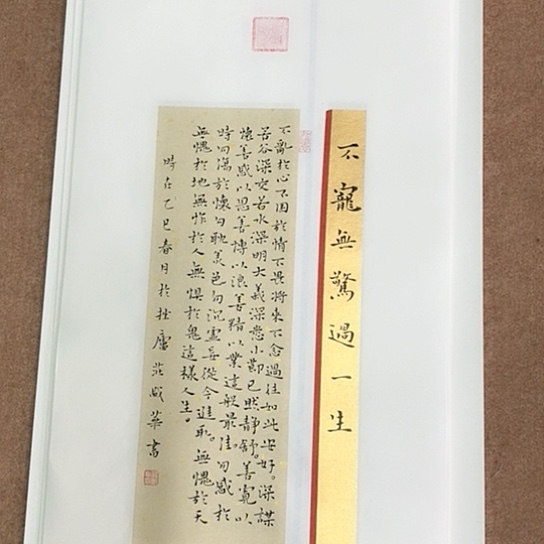 不寵無驚過一生
不亂於心不困於情不畏將來不念過往如此安好。深謀
若谷深交若水深明大義深悉小節已然靜舒。善寬以
懷善感以恩善博以浪善精以業這般最佳勿感於
時勿傷於懷勿耽美色勿沉虛妄從今進取。無愧於天
無愧於地無怍於人無懼於鬼這樣人生。
時在乙巳春月於拙廬莊華書